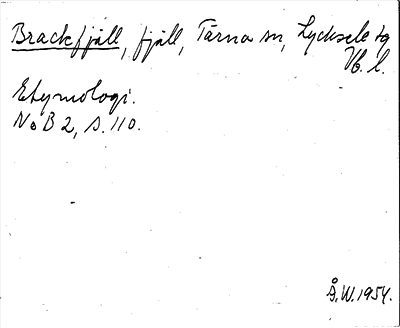 Brackfjäll, fjäll, Tärna sn, Lycksele tg
Vb. l.
Etymologi.
NoB 2, s. 110.
Å.W. 1954.